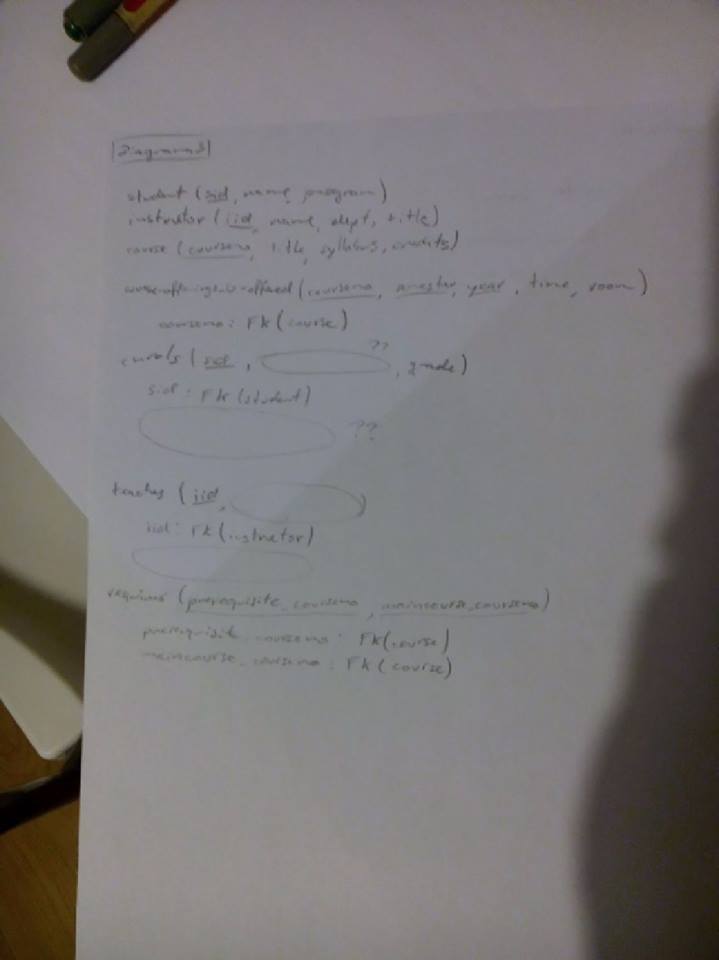 Diagram 3
student (sid, name, program)
instructor (iid, name, dept, title)
course (courseno, title, syllabus, credits)
course-offering-is-offered (courseno, semester, year, time, room)
courseno: FK (course)
enrols (sid, ??, grade)
sid: FK (student)
??
teaches (iid, )
iid: FK (instructor)
requires (prerequisite_courseno, maincourse_courseno)
prerequisite_courseno: FK (course)
maincourse_courseno: FK (course)